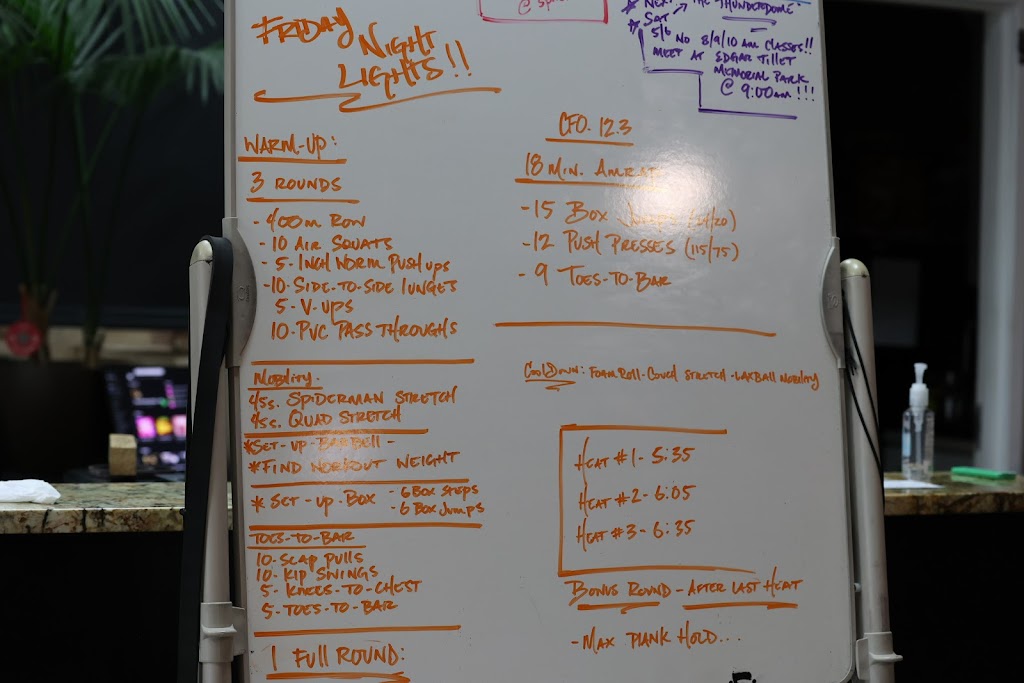 FRIDAY
NIGHT
LIGHTS!!
WARM-UP:
3 ROUNDS
- 400m ROW
- 10 AIR SQUATS
- 5-INCH WORM PUSH UPS
-10-SIDE-TO-SIDE LUNGES
5-V-UPS
10-PVC PASS THROUGHS
MOBILITY-
45s. SPIDERMAN STRETCH
45s. QUAD STRETCH
*SET-UP-BARBELL-
*FIND WORKOUT WEIGHT
* SET-UP-BOX - 6 BOX STEPS
- 6 BOX JUMPS
TOES-TO-BAR
10-SCAP PULLS
10-KIP SWINGS
5-KNEES-TO-CHEST
5-TOES-TO-BAR
1 FULL ROUND:
* SAT → THE THUNDERDOME
5/6 NO 8/9/10 AM CLASSES!!
MEET AT EDGAR TILLET
MEMORIAL PARK
@ 9:00AM!!!
CFO-12.3
18 MIN. AMRAP
-15 BOX JUMPS (24/20)
-12 PUSH PRESSES (115/75)
- 9 TOES-TO-BAR
COOLDOWN: FOAM ROLL-COUCH STRETCH-LAXBALL MOBILITY
HEAT #1-5:35
HEAT #2-6:05
HEAT #3-6:35
BONUS ROUND - AFTER LAST HEAT
-MAX PLANK HOLD...